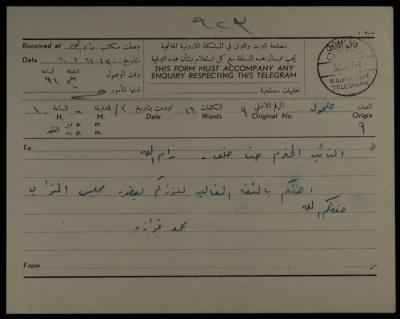 ٩٢٣
١٠-٥٠
Received at وصلت مكتب
Date بتاريخ
الساعة الدقيقة وقت الوصول
تسلمها المأمور
مصلحة البريد والبرق في المملكة الاردنية الهاشمية
يجب ارسال هذه النسخة مع كل استعلام بشأن هذه البرقية
THIS FORM MUST ACCOMPANY ANY
ENQUIRY RESPECTING THIS TELEGRAM
تعليمات مصلحية
TELEGRAPH
الساعة ١٠ الدقيقة اودعت بتاريخ الكلمات ١٦ الرقم الاصلي ٩ المصدر حلحول
H. M. Date Words Original No. Origin
a. m.
p. m.
٩
To الى
النائب المحترم حنا خلف - رام الله
اهنئكم بالثقة الغالية لفوزكم بعضوية مجلس النواب
حفظكم الله
محمد
From من